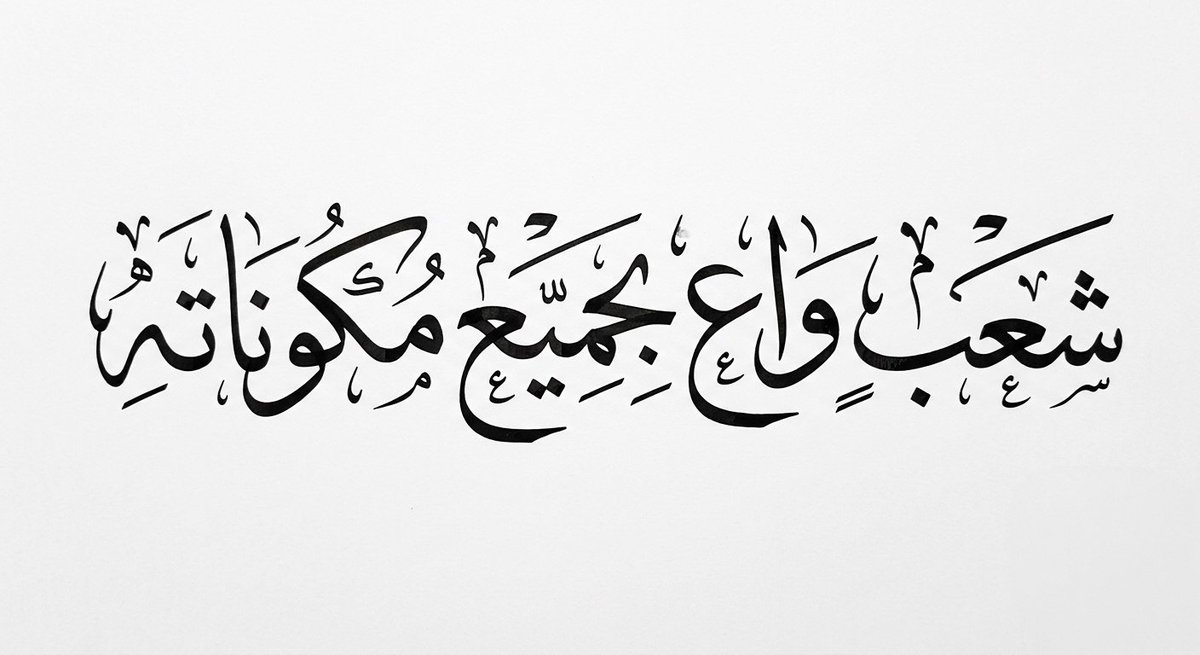 شَعْب وَاعٍ بِجَمِيْع مُكَوِّنَاتِهِ